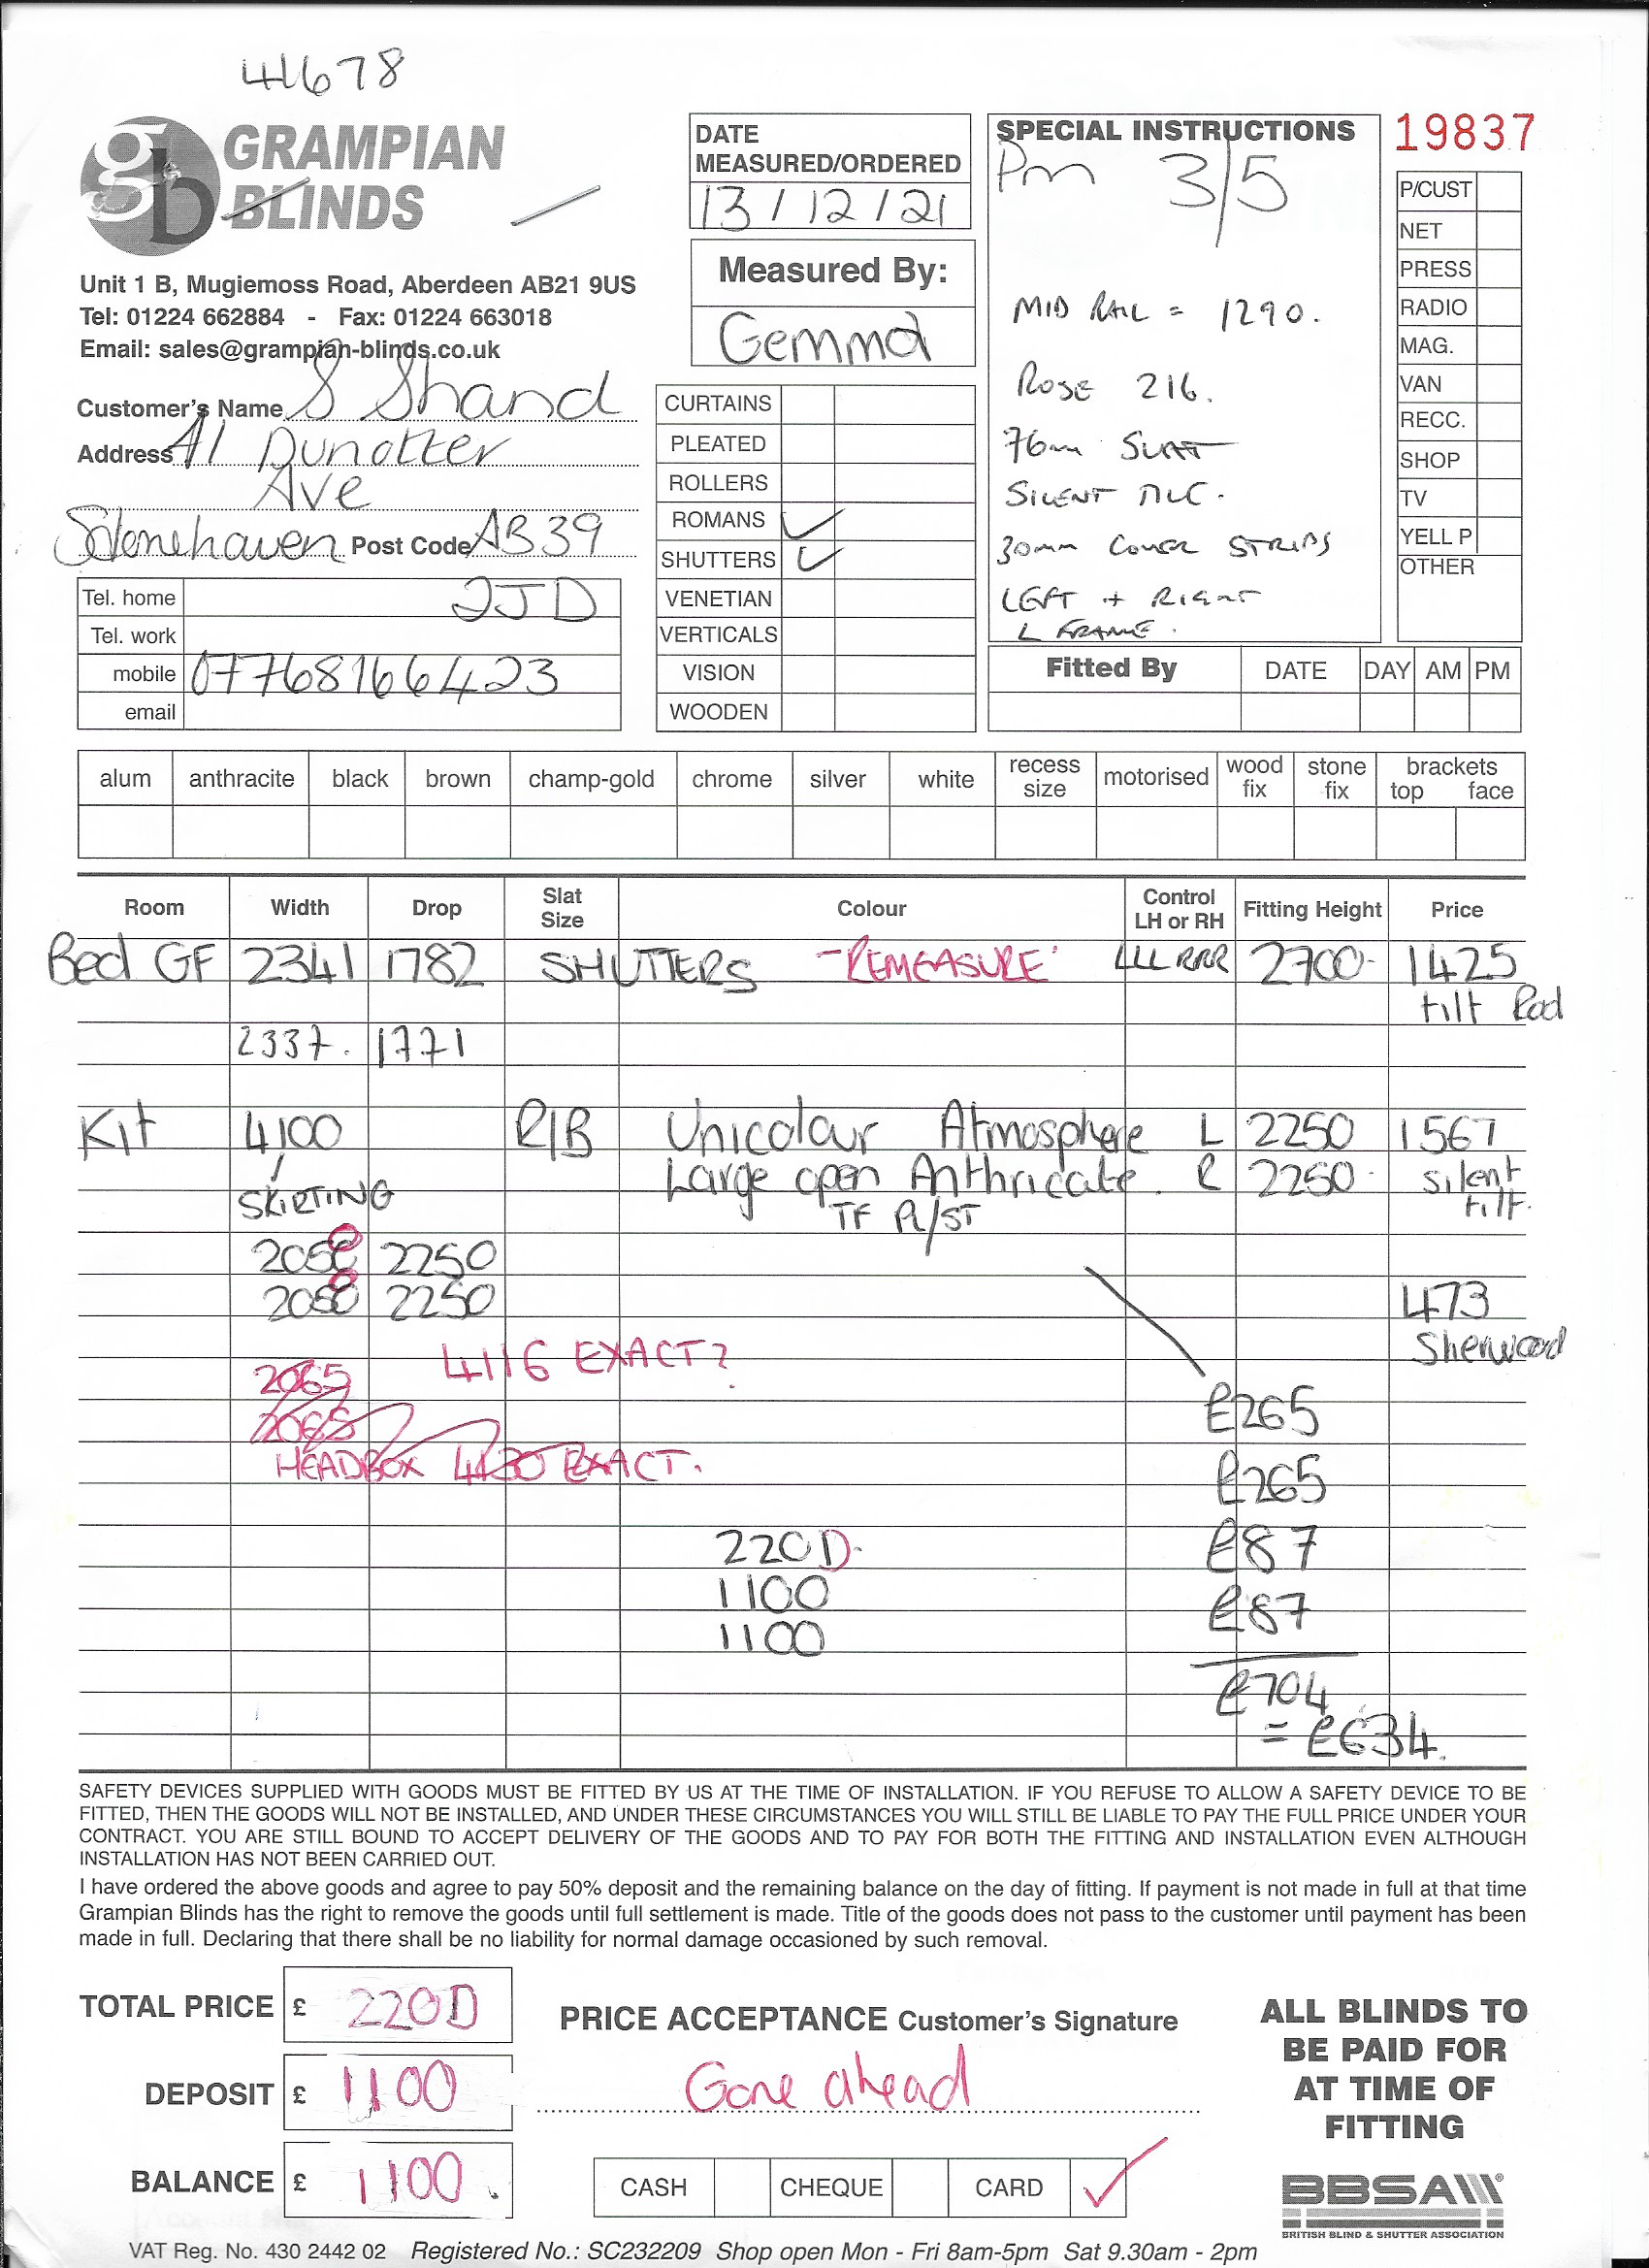 41678
GRAMPIAN
BLINDS
gb
Unit 1 B, Mugiemoss Road, Aberdeen AB21 9US
Tel: 01224 662884 - Fax: 01224 663018
Email: sales@grampian-blinds.co.uk
Customer's Name S Shand
Address 41 Dunotter
Ave
Stonehaven Post Code AB39
2JD
Tel. home
Tel. work
mobile 07768166423
email
DATE
MEASURED/ORDERED
13/12/21
Measured By:
Gemma
CURTAINS
PLEATED
ROLLERS
ROMANS ✓
SHUTTERS ✓
VENETIAN
VERTICALS
VISION
WOODEN
SPECIAL INSTRUCTIONS
Pm 3/5
MID RAIL = 1290.
ROSE 216.
76mm SLAT
SILENT
30mm COVER STRIPS
LEFT + RIGHT
L FRAME.
19837
P/CUST
NET
PRESS
RADIO
MAG.
VAN
RECC.
SHOP
TV
YELL P
OTHER
Fitted By DATE DAY AM PM
alum anthracite black brown champ-gold chrome silver white recess size motorised wood fix stone fix brackets top face
Room Width Drop Slat Size Colour Control LH or RH Fitting Height Price
Bed GF 2341 1782 SHUTTERS -REMEASURE- LLL RRR 2700- 1425
tilt Rod
2337. 1771
Kit 4100 R/B Unicolour Atmosphere L 2250 1567
/ Large open Anthricate. R 2250- silent
SKIRTING TF R/ST tilt.
2058 2250
2058 2250 473
Sherwood
4116 EXACT?
2065
2065
£265
HEADBOX 4130 EXACT.
£265
220D. £87
1100 £87
1100
£704
= £634.
SAFETY DEVICES SUPPLIED WITH GOODS MUST BE FITTED BY US AT THE TIME OF INSTALLATION. IF YOU REFUSE TO ALLOW A SAFETY DEVICE TO BE
FITTED, THEN THE GOODS WILL NOT BE INSTALLED, AND UNDER THESE CIRCUMSTANCES YOU WILL STILL BE LIABLE TO PAY THE FULL PRICE UNDER YOUR
CONTRACT. YOU ARE STILL BOUND TO ACCEPT DELIVERY OF THE GOODS AND TO PAY FOR BOTH THE FITTING AND INSTALLATION EVEN ALTHOUGH
INSTALLATION HAS NOT BEEN CARRIED OUT.
I have ordered the above goods and agree to pay 50% deposit and the remaining balance on the day of fitting. If payment is not made in full at that time
Grampian Blinds has the right to remove the goods until full settlement is made. Title of the goods does not pass to the customer until payment has been
made in full. Declaring that there shall be no liability for normal damage occasioned by such removal.
TOTAL PRICE £ 220D
DEPOSIT £ 1100
BALANCE £ 1100.
PRICE ACCEPTANCE Customer's Signature
Gone ahead
CASH CHEQUE CARD ✓
ALL BLINDS TO
BE PAID FOR
AT TIME OF
FITTING
BBSA
BRITISH BLIND & SHUTTER ASSOCIATION
VAT Reg. No. 430 2442 02 Registered No.: SC232209 Shop open Mon - Fri 8am-5pm Sat 9.30am - 2pm